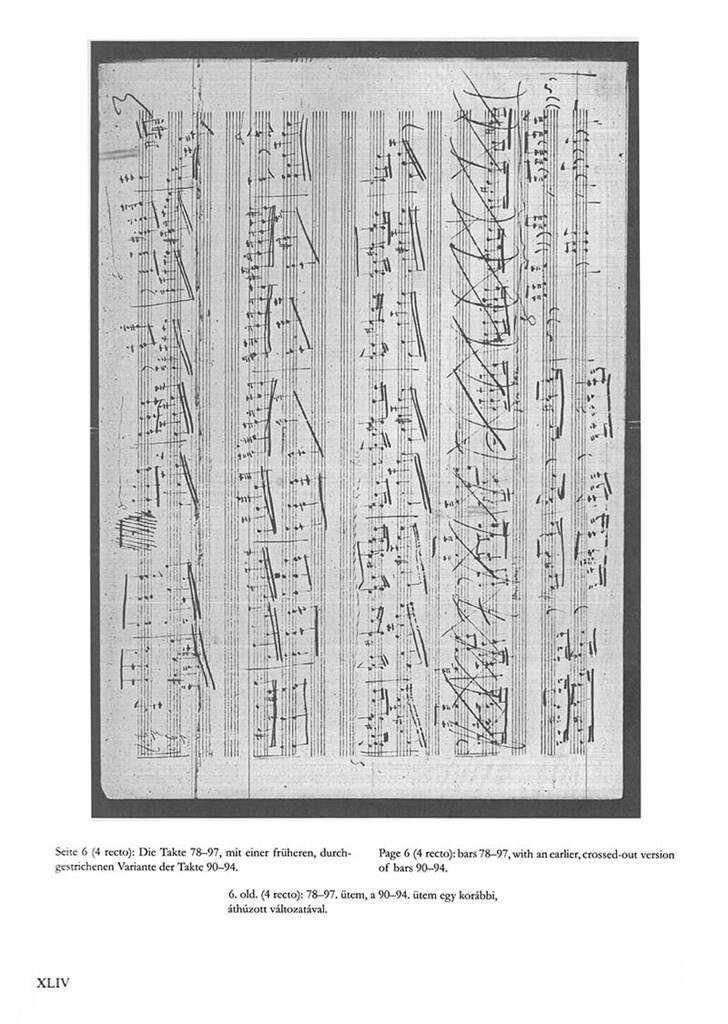 Seite 6 (4 recto): Die Takte 78–97, mit einer früheren, durch-
gestrichenen Variante der Takte 90–94.
Page 6 (4 recto): bars 78–97, with an earlier, crossed-out version
of bars 90–94.
6. old. (4 recto): 78–97. ütem, a 90–94. ütem egy korábbi,
áthúzott változatával.
XLIV